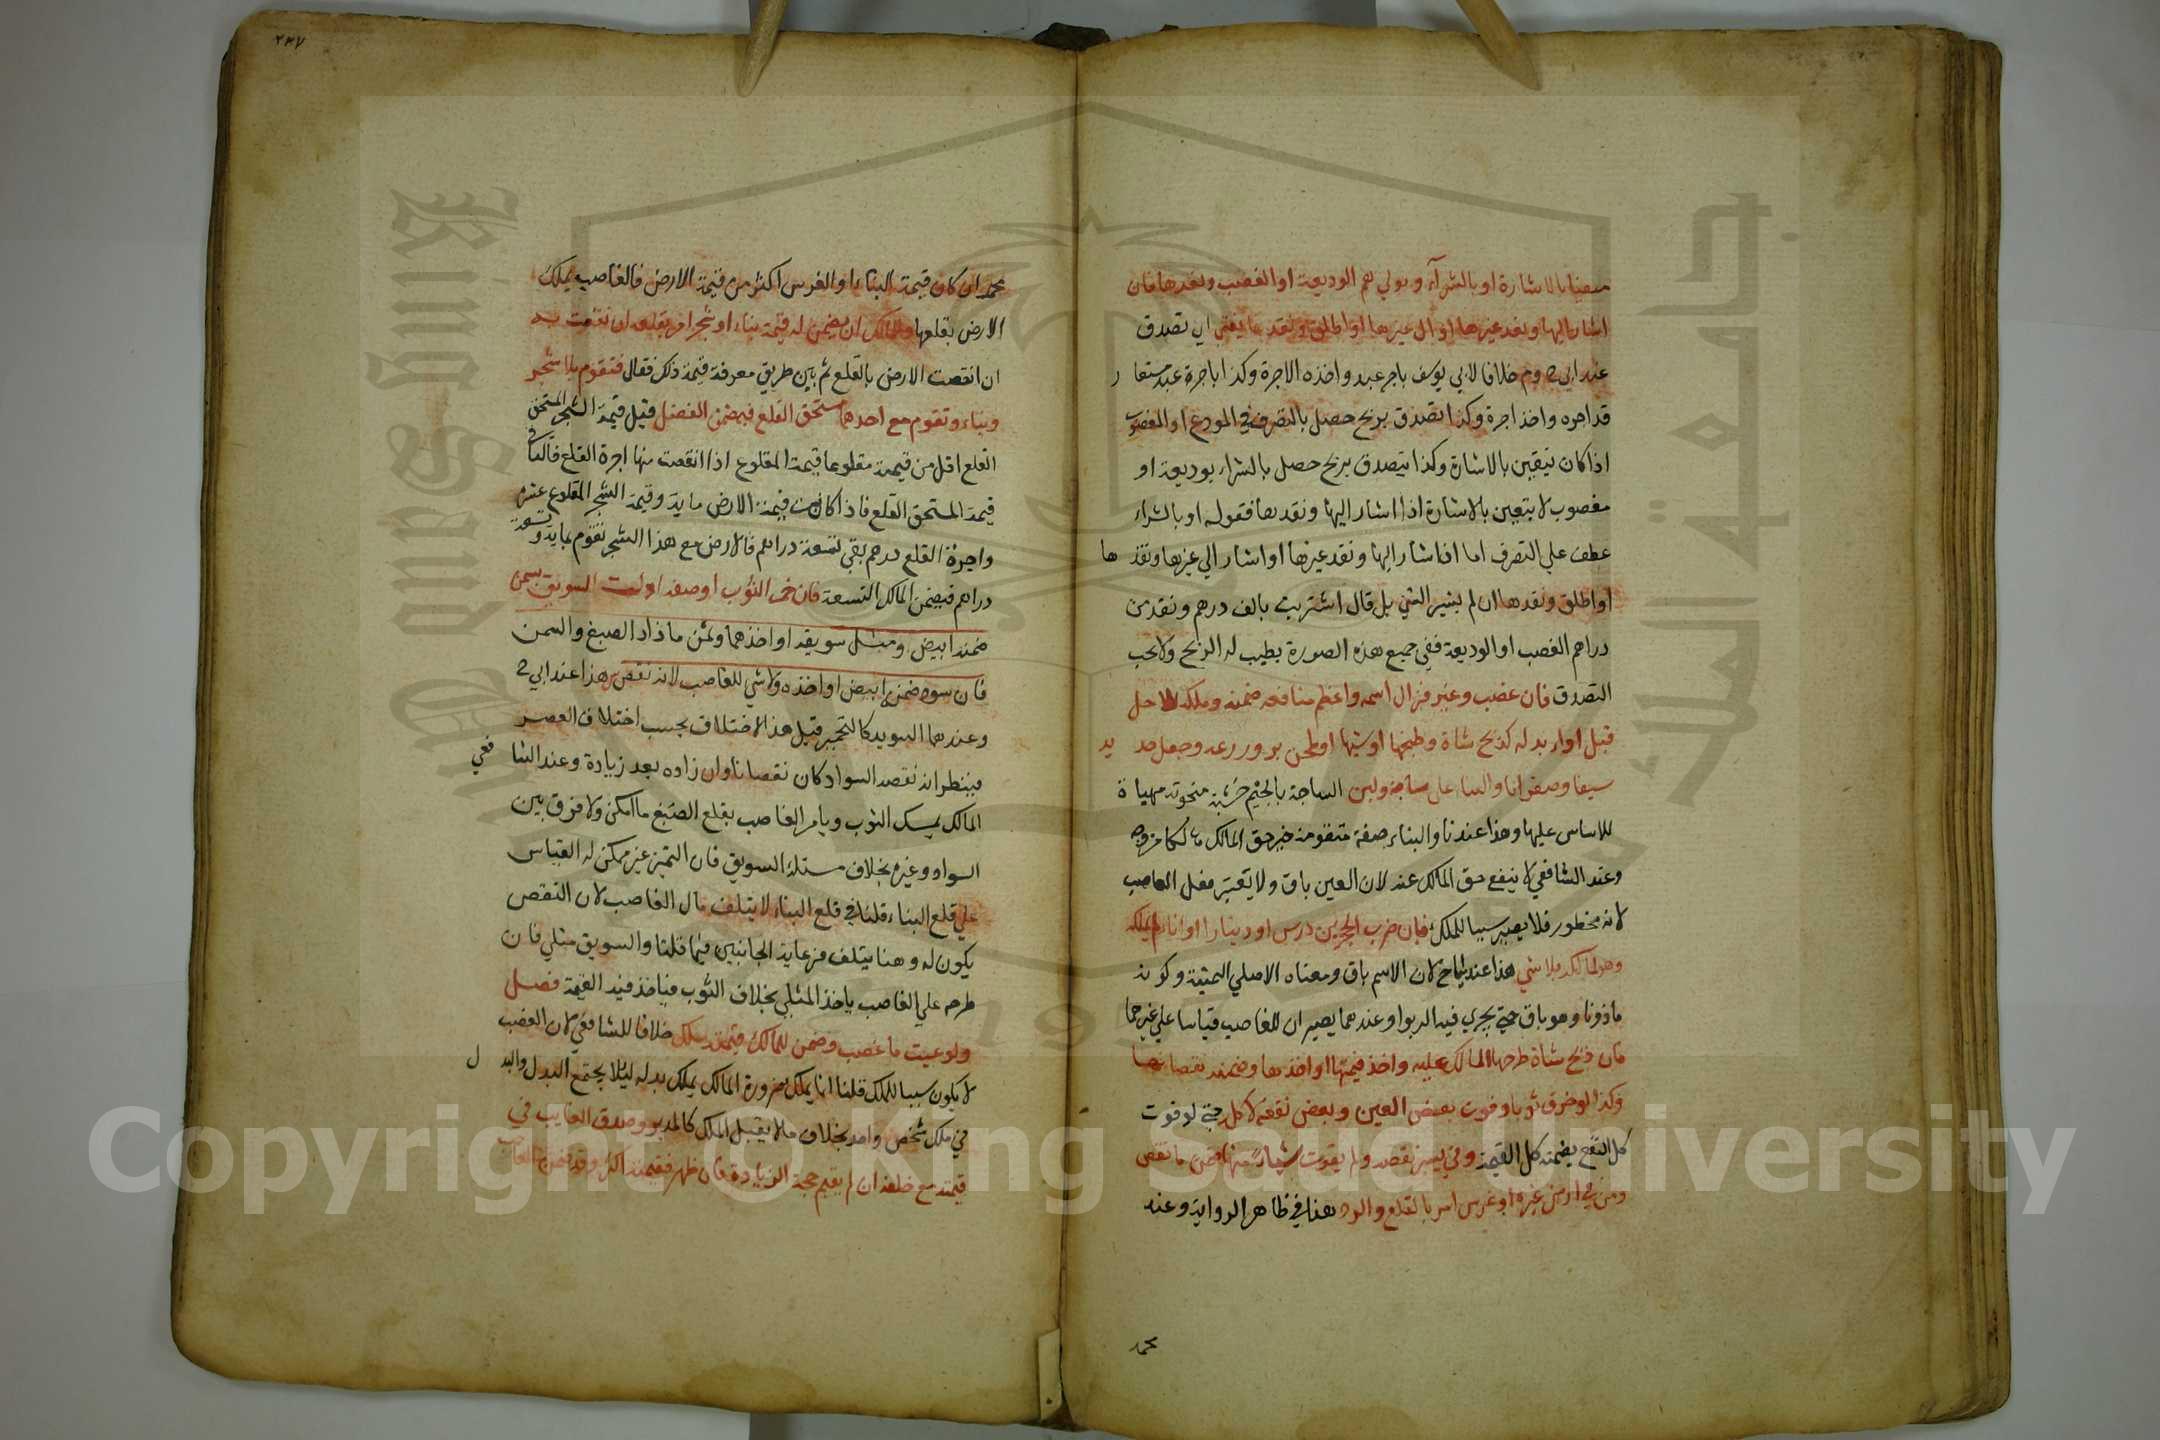 متعينا بالاشارة او بالشراء وبولي هم الوديعة او الغصب ونقدها فان
اشار اليها ونقد غيرها او الى غيرها او اطلق ونقدها يفتى اي تصدق
عند ابي ح وم خلافا لابي يوسف باجر عبد واخذه الاجرة وكذا باجرة عبد مستعار
قد اجره واخذ اجرة وكذا تصدق بربح حصل بالتصرف في المودع او المغصوب
اذا كان يتعين بالاشارة وكذا يتصدق بربح حصل بالشراء بوديعة او
مغصوب لا يتعين بالاشارة اذا اشار اليها ونقدها فقوله او بالشراء
عطف علي التصرف اما اذا اشار اليها ونقد غيرها او اشار الي غيرها ونقدها
او اطلق ونقدها ان لم يشير الشي بل قال اشتريت بالف درهم ونقد من
دراهم الغصب او الوديعة ففي جميع هذه الصورة يطيب له الربح ولا يجب
التصدق فان غصب وغير فزال اسمه واعظم منافعه ضمنه وملكه بلا حل
قبل اداء بدله كذبح شاة وطبخها او شيها او طحن بر وزرعه وجعل حديد
سيفا وصفر انا والبنا على ساجة ولبن الساجة بالجيم خشبة منحوتة مهياة
للاساس عليها وهذا عندنا والبناء صفة متقومة حق المالك
وعند الشافعي لا ينقطع حق المالك عنه لان العين باق ولا يعتبر فعل الغاصب
لانه محظور فلا يصير سببا للملك فان ضرب الحجرين درس او دينارا او انا لم يملكه
وهو لمالكه بلا شي هذا عند ابي ح لان الاسم باق ومعناه الاصلي الثمنية وكونه
ماذونا وهو باق حتى يجري فيه الربوا وعندهما يصير ان للغاصب قياسا علي غيرهما
فان ذبح شاة طرحها المالك عليه واخذ قيمتها او اخذها وضمنه نقصانها
وكذا لو خرق ثوبا وفوت بعض العين وبعض نفعه لا كله حتى لو فوت
كل النفع يضمنه كل القيمة وفي يسير نقصه ولم يفوت شيا منها ضمن ما نقص
ومن بنى في ارض غيره او غرس امر بالقلع والرد هذا في ظاهر الرواية وعند
محمد
٢٣٧
محمد ان كان قيمة البناء او الغرس اكثر من قيمة الارض فالغاصب يملك
الارض بقلعها وللمالك ان يضمن له قيمة بناء او شجر امر بقلعه ان نقصت به
ان انقصت الارض بالقلع ثم بين طريق معرفة قيمة ذلك فقال فتقوم بلا شجر
وبناء وتقوم مع احدهما مستحق القلع فيضمن الفضل قيل قيمة الشجر المستحق
القلع اقل من قيمته مقلوعا قيمة المقلوع اذا انقصت منها اجرة القلع فالباقي
قيمة المستحق القلع فاذا كانت قيمة الارض ماية وقيمة الشجر المقلوع عشرة
واجرة القلع درهم بقي تسعة دراهم فالارض مع هذا الشجر تقوم بماية وتسعة
دراهم فيضمن المالك التسعة فان حمر الثوب او صفر او لت السويق بسمن
ضمنه ابيض ومثل سويقه او اخذهما وثمن ما زاد الصبغ والسمن
فان سود ضمن ابيض او اخذه ولا شي للغاصب لانه نقص هذا عند ابي ح
وعندهما السويد كالتحمير قيل هذا الاختلاف بحسب اختلاف العصر
فينظر ان نقصه السواد كان نقصانا وان زاده يعد زيادة وعند الشافعي
المالك يمسك الثوب ويامر الغاصب بقلع الصبغ ما امكن ولا فرق بين
السواد وغيره بخلاف مسئلة السويق فان التميز غير ممكن له القياس
علي قلع البناء قلنا في قلع البناء لا يتلف مال الغاصب لان النقص
يكون له وهنا يتلف فرعاية الجانبين فيما قلنا والسويق مثلي فان
طرحه علي الغاصب ياخذ المثلي بخلاف الثوب فياخذ فيه القيمة فصل
ولو غيبت ما غصب وضمن للمالك قيمته ملك خلافا للشافعي لان الغصب
لا يكون سببا للملك قلنا انما يملك ضرورة المالك يملك بدله ليلا يجتمع البدل والبدل
في ملك شخص واحد بخلاف ما لا يقبل الملك كالمدبر وصدق الغايب في
قيمته مع حلفه ان لم يقم حجة الزيادة فان ظهر وقيمته اكثر وقد ضمن